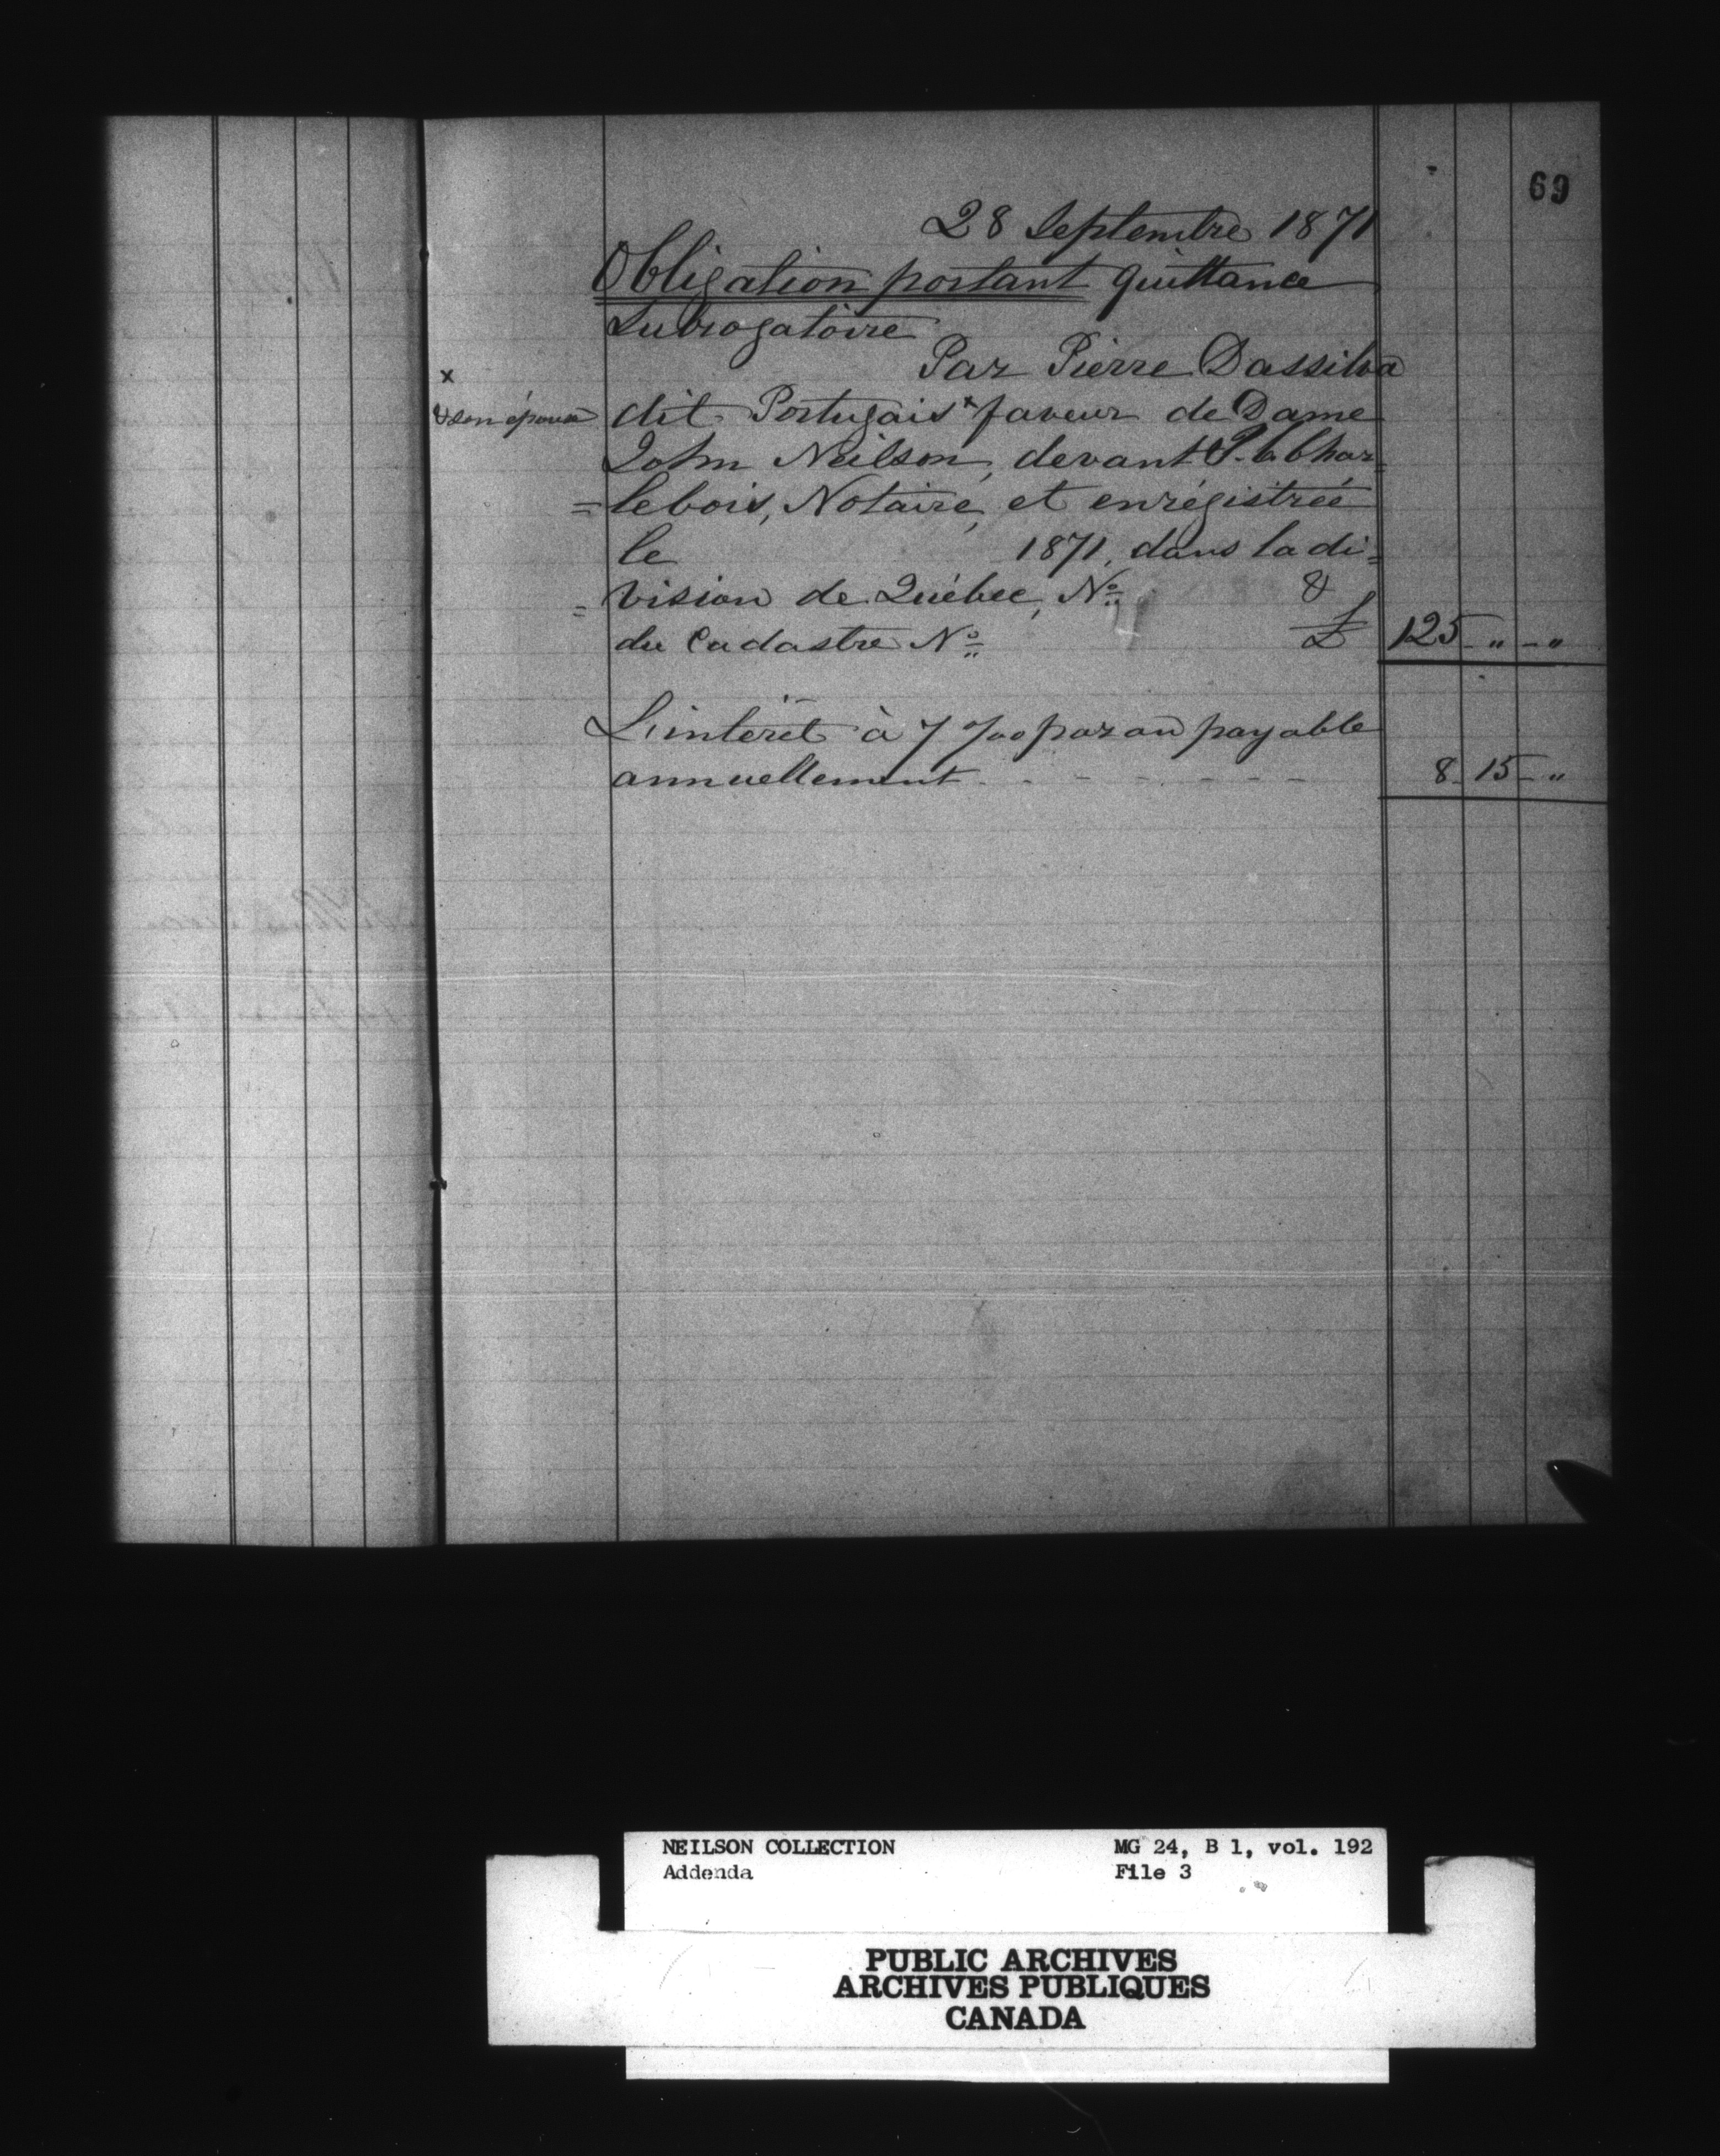 69
28 Septembre 1871
Obligation portant quittance
Subrogatoire
Par Pierre Dassilva
x
& son épouse
dit Portugais x faveur de Dame
John Neilson, devant P. C. Char=
=lebois, Notaire, et enrégistrée
le 1871, dans la di=
=vision de Québec, No. &
du Cadastre No. £ 125 - " - "
L'intérêt à 7 %00 par an payable
annuellement - - - - - - - 8 - 15 - "
NEILSON COLLECTION MG 24, B 1, vol. 192
Addenda File 3
PUBLIC ARCHIVES
ARCHIVES PUBLIQUES
CANADA